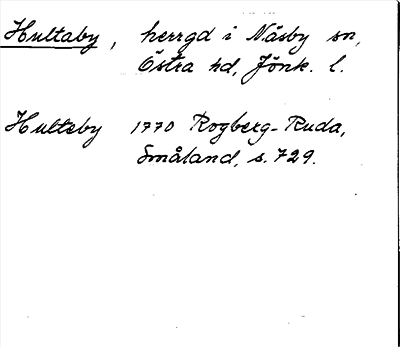 Hultaby, herrgd i Näsby sn,
Östra hd, Jönk. l.
Hulteby 1770 Rogberg-Ruda,
Småland, s. 729.